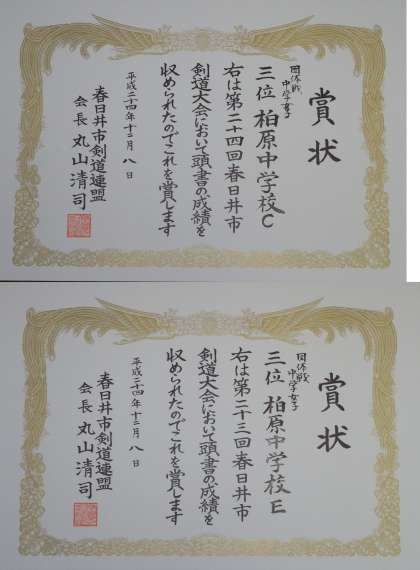 賞状
団体戦
中学女子
三位 柏原中学校C
右は第二十四回春日井市
剣道大会において頭書の成績を
収められたのでこれを賞します
平成二十四年十二月八日
春日井市剣道連盟
会長 丸山清司
賞状
団体戦
中学女子
三位 柏原中学校E
右は第二十三回春日井市
剣道大会において頭書の成績を
収められたのでこれを賞します
平成二十四年十二月八日
春日井市剣道連盟
会長 丸山清司